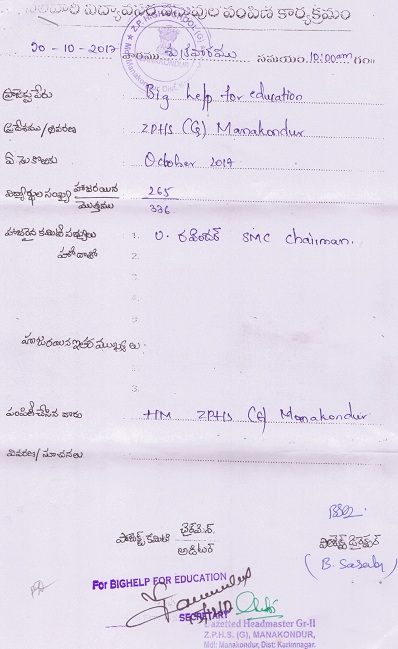 విద్యావసర వస్తువుల పంపిణి కార్యక్రమం
20-10-2017 వారము శుక్రవారము సమయం 10:00am గం॥
ప్రాజెక్టు పేరు Big help for education
ప్రదేశము/వివరణ ZPHS (G) Manakondur
ఏ నెల కొరకు October 2017
విద్యార్థుల సంఖ్య హాజరయిన 265
మొత్తము 336
హాజరైన కమిటి సభ్యులు 1. రవీందర్ SMC chairman.
హోదాతో 2.
3.
హాజరయిన ఇతర ముఖ్యులు. 1.
2.
3.
పంపిణి చేసిన వారు HM ZPHS (G) Manakondur
వివరణ/సూచనలు
ప్రాజెక్ట్ కమిటి ఛైర్మన్
ఆడిటర్
ప్రాజెక్ట్ డైరెక్టర్
For BIGHELP FOR EDUCATION
SECRETARY
Gazetted Headmaster Gr-II
Z.P.H.S. (G), MANAKONDUR,
Mdl: Manakondur, Dist: Karimnagar.